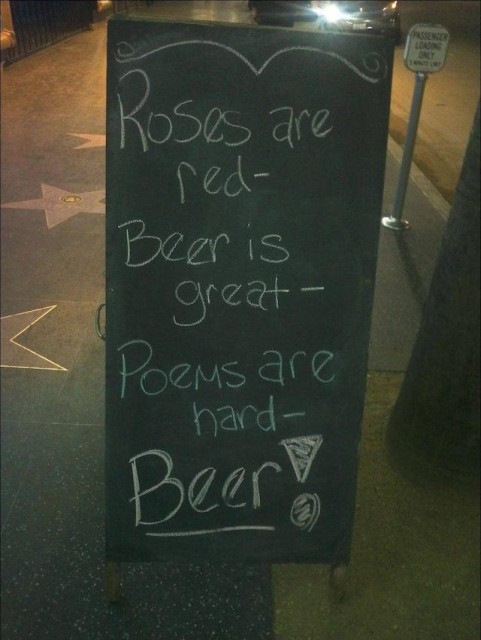 Roses are
red-
Beer is
great-
Poems are
hard-
Beer!
PASSENGER
LOADING
ONLY